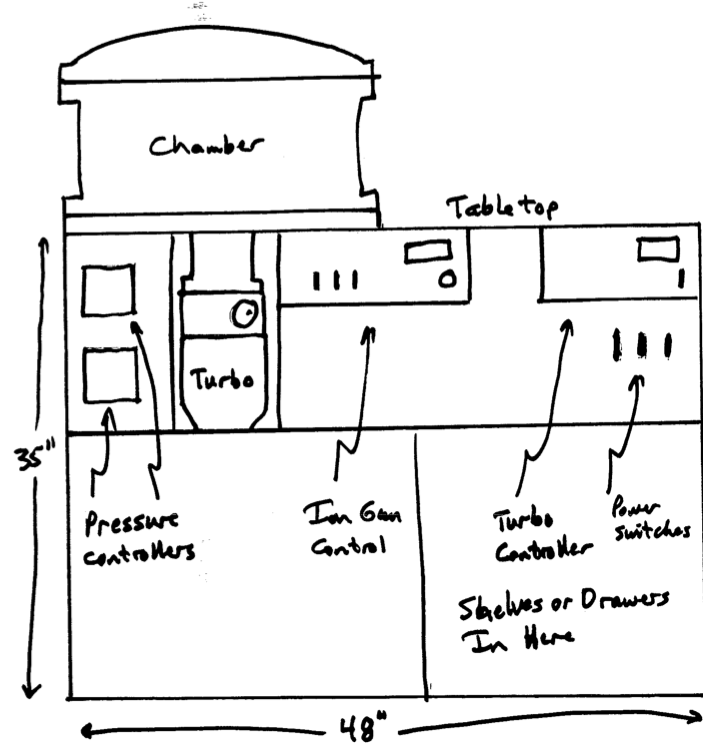 Chamber
Tabletop
Turbo
35"
Pressure
controllers
Ion Gun
Control
Turbo
Controller
Power
switches
Shelves or Drawers
In Here
48"